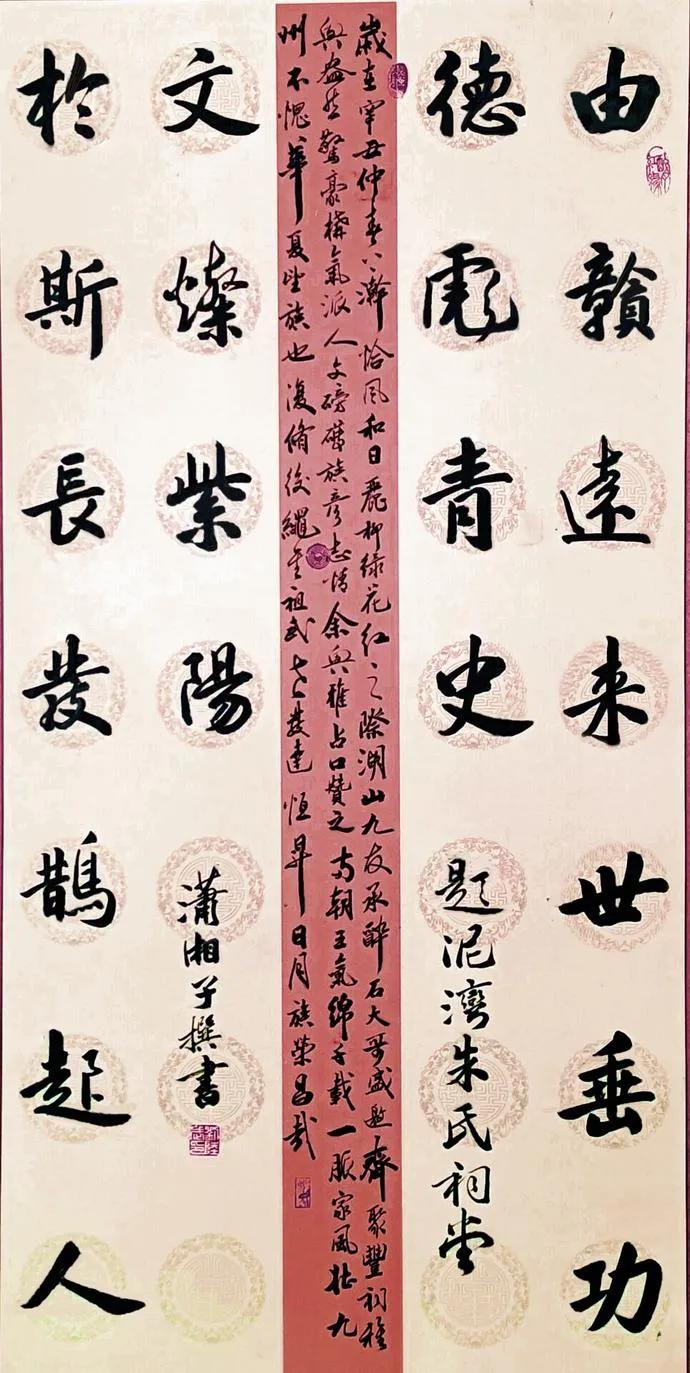 由贛遠来世垂功
德彪青史
題泥灣朱氏祠堂
歲在辛丑仲春澣恰風和日麗柳綠花紅之際湖山九友承醉石大哥盛邀齊聚豐祠雅
興盎然驚豪構氣派人文磅礴族彥志情余興雅占口贊之南朝王氣綿千載一脈家風壯九
州不愧華夏望族也復脩後繩其祖武發達恒昇日月族榮昌哉
於斯長發鵲起人
文燦紫陽
瀟湘子撰書